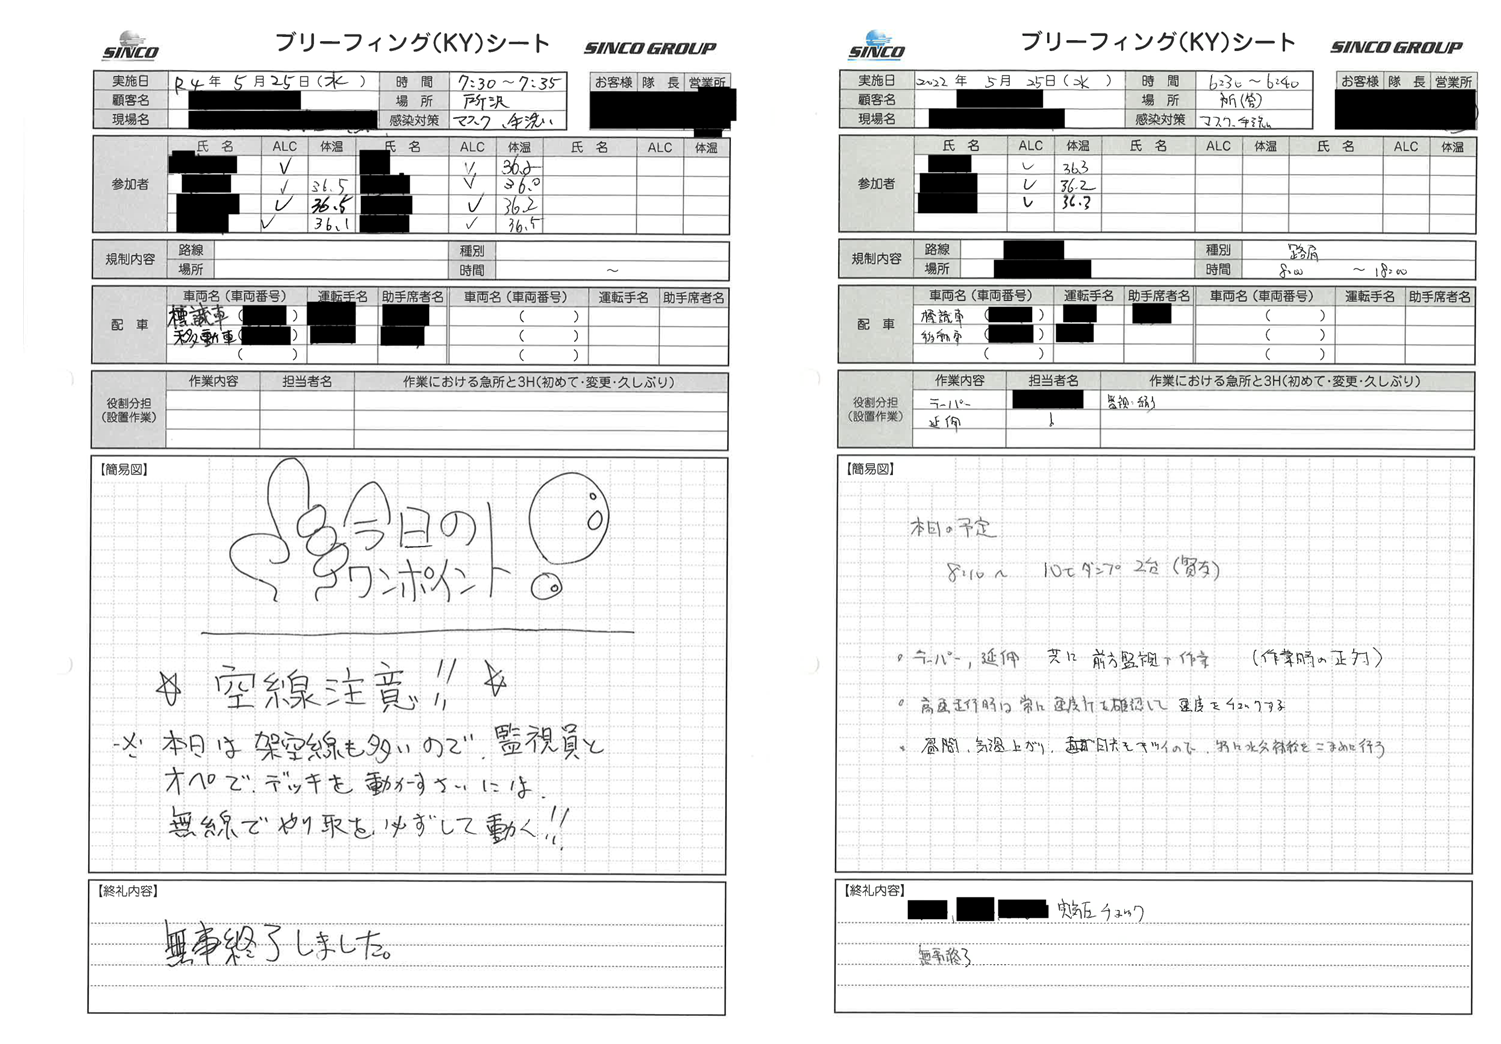 SINCO
ブリーフィング(KY)シート
SINCO GROUP
実施日 R4年 5月25日(水) 時間 7:30~7:35
顧客名 場所 所沢
現場名 感染対策 マスク、手洗い
お客様 隊長 営業所
参加者
氏名 ALC 体温 氏名 ALC 体温 氏名 ALC 体温
✓ ✓ 36.2
✓ 36.5 ✓ 36.0
✓ 36.5 ✓ 36.2
✓ 36.1 ✓ 36.5
規制内容
路線 種別
場所 時間 ~
配車
車両名(車両番号) 運転手名 助手席者名 車両名(車両番号) 運転手名 助手席者名
標識車( ) ( )
移動車( ) ( )
( ) ( )
役割分担
(設置作業)
作業内容 担当者名 作業における急所と3H(初めて・変更・久しぶり)
【簡易図】
今日の
ワンポイント
☆ 空線注意!! ☆
※ 本日は架空線も多いので、監視員と
オペで、デッキを動かすさいには、
無線でやり取を必ずして動く!!
【終礼内容】
無事終了しました。
SINCO
ブリーフィング(KY)シート
SINCO GROUP
実施日 2022年 5月25日(水) 時間 6:30~6:40
顧客名 場所
現場名 感染対策 マスク、手洗い
お客様 隊長 営業所
参加者
氏名 ALC 体温 氏名 ALC 体温 氏名 ALC 体温
✓ 36.3
✓ 36.2
✓ 36.3
規制内容
路線 種別 路肩
場所 時間 8:00 ~ 18:00
配車
車両名(車両番号) 運転手名 助手席者名 車両名(車両番号) 運転手名 助手席者名
標識車( ) ( )
移動車( ) ( )
( ) ( )
役割分担
(設置作業)
作業内容 担当者名 作業における急所と3H(初めて・変更・久しぶり)
テーパー 監視・
延伸 ↓
【簡易図】
本日の予定
8:10~ 10tダンプ 2台
・テーパー、延伸 共に 前方監視で作業 (作業時の
・高速走行時は常に速度計を確認して 速度をチェックする
・昼間、気温上がり、 ので、 水分補給をこまめに行う
【終礼内容】
チェック
無事終了